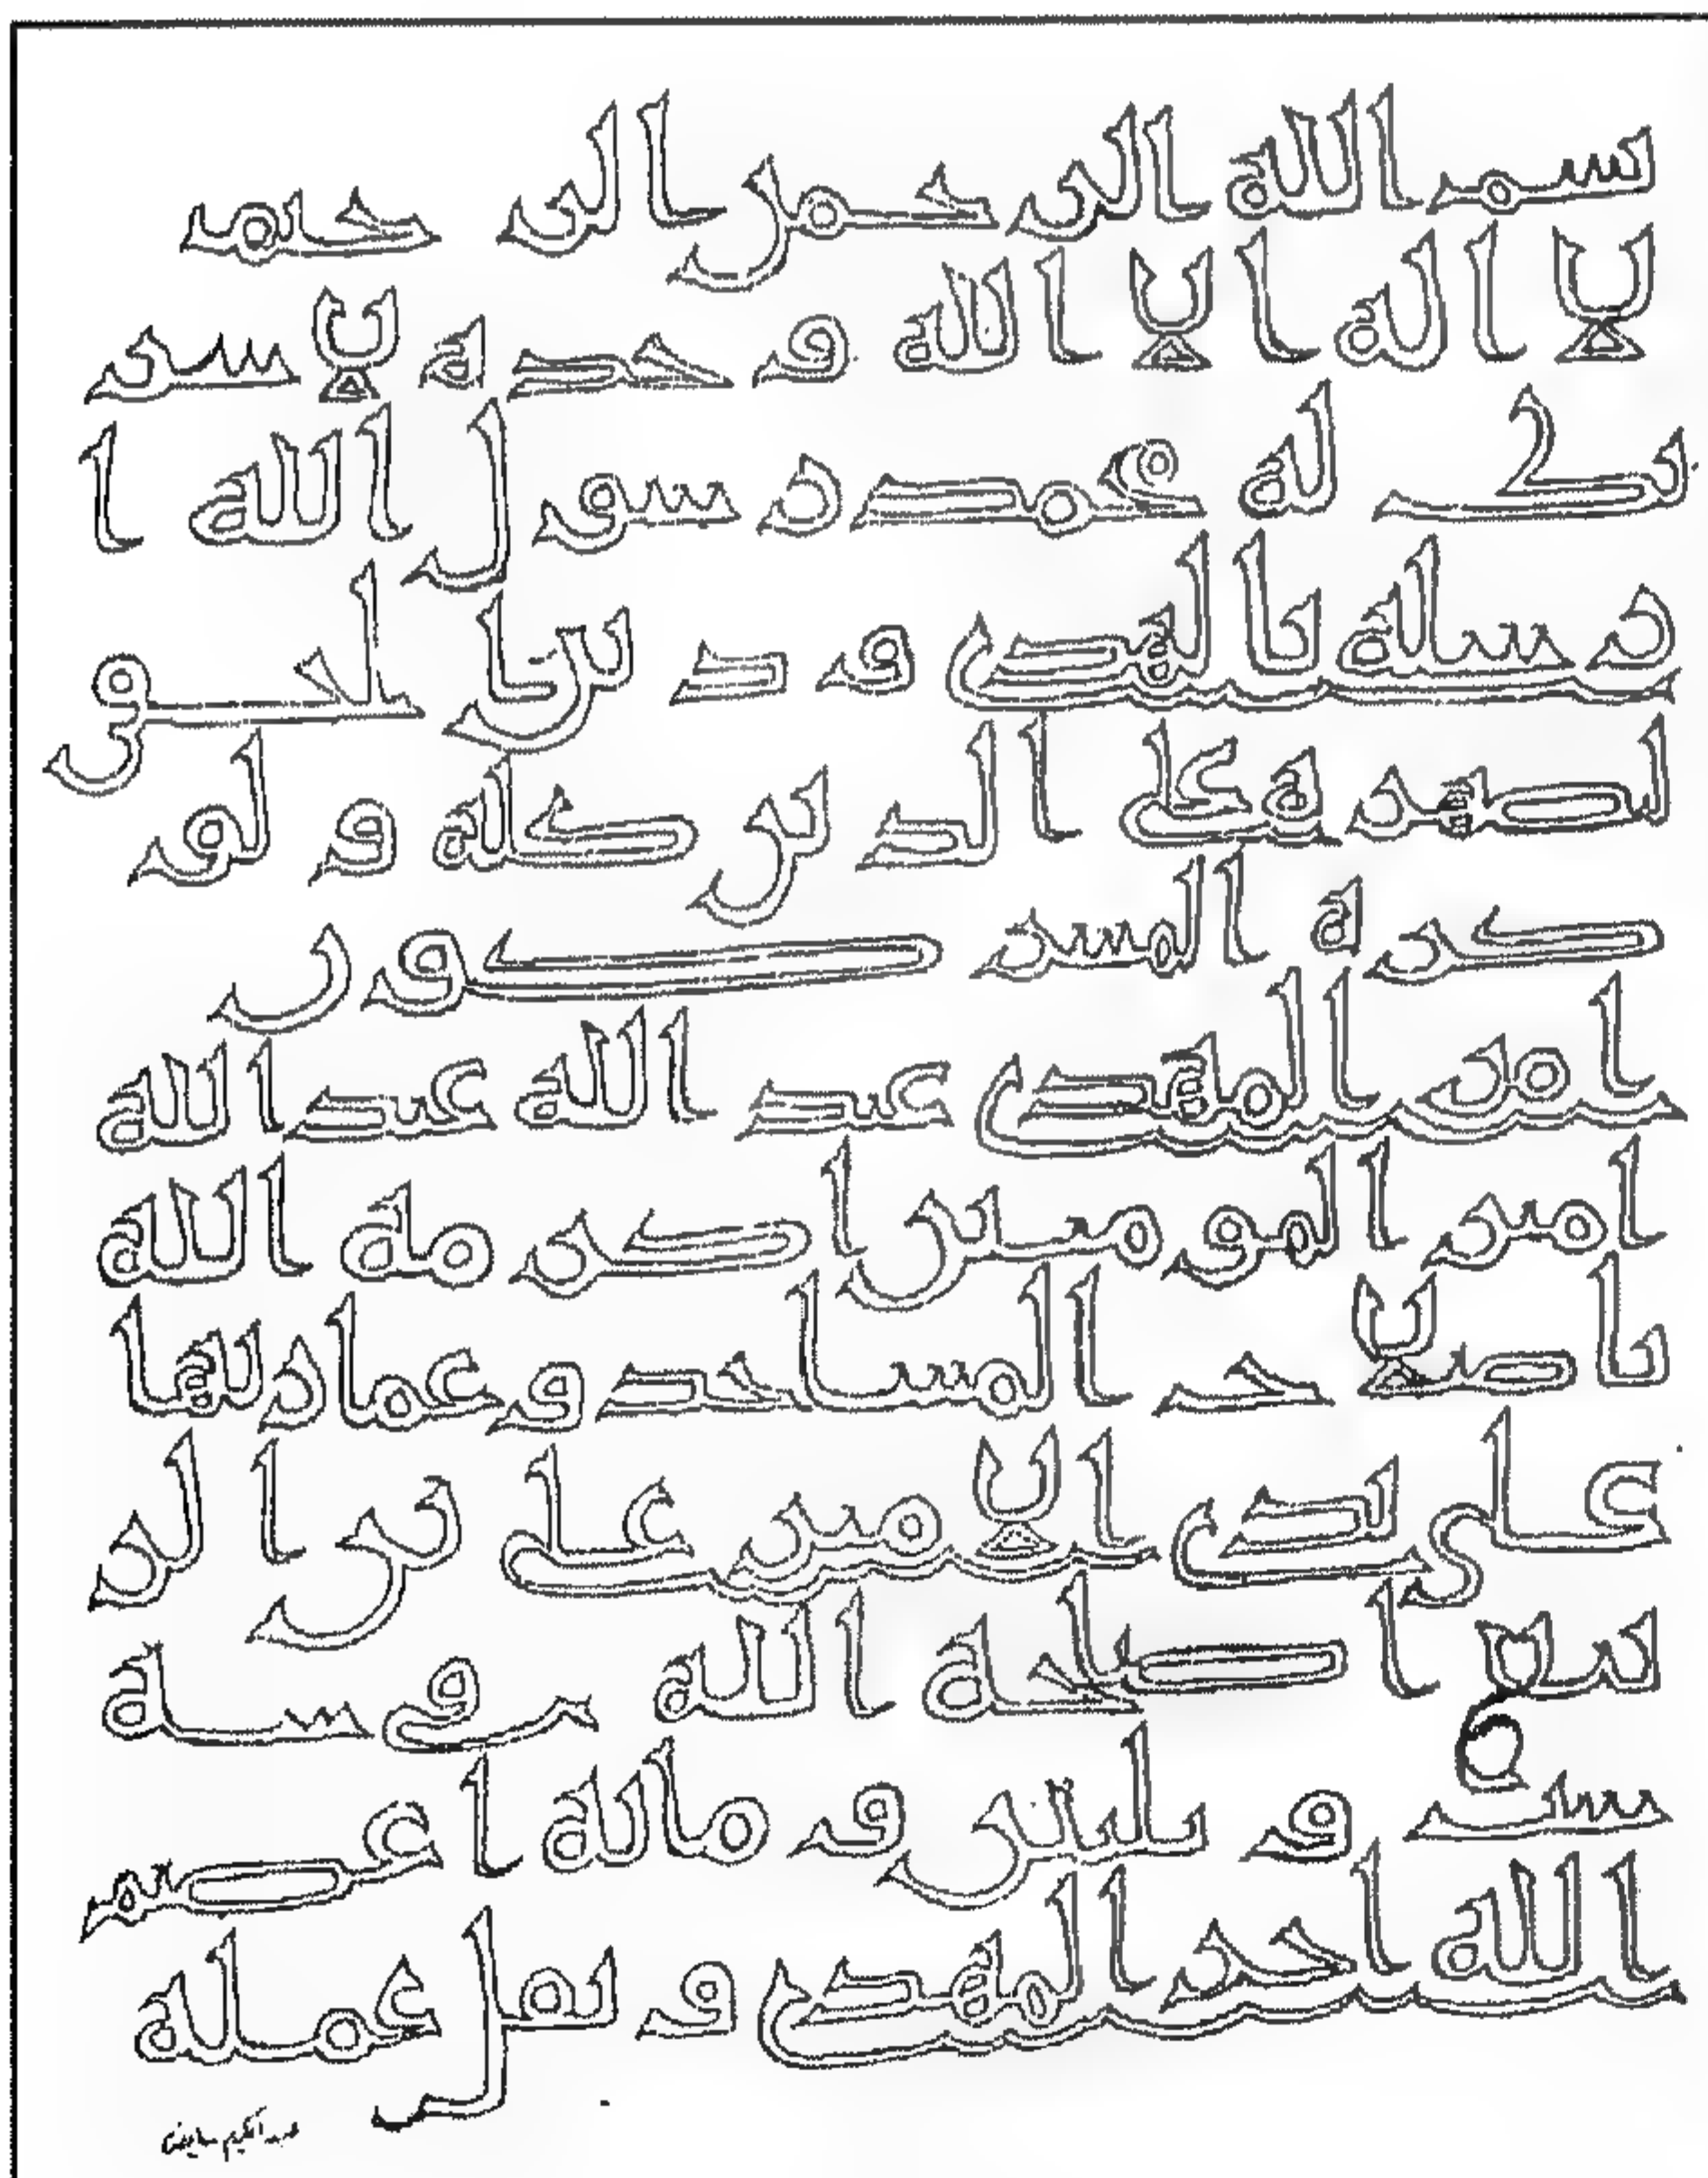 بسم الله الرحمن الرحيم
لا اله الا الله وحده لا شر
يك له محمد رسول الله ا
رسله بالهدى ودين الحق
ليظهره على الدين كله ولو
كره المشركون
امر المهدي عبد الله عبد الله
امير المومنين اكرمه الله
باصلاح المساجد وعمارتها
على يدي الامير علي بن الر
بيع اصلحه الله في سنة
ست وثلثين ومائة اعظم
الله اجر المهدي وتقبل عمله